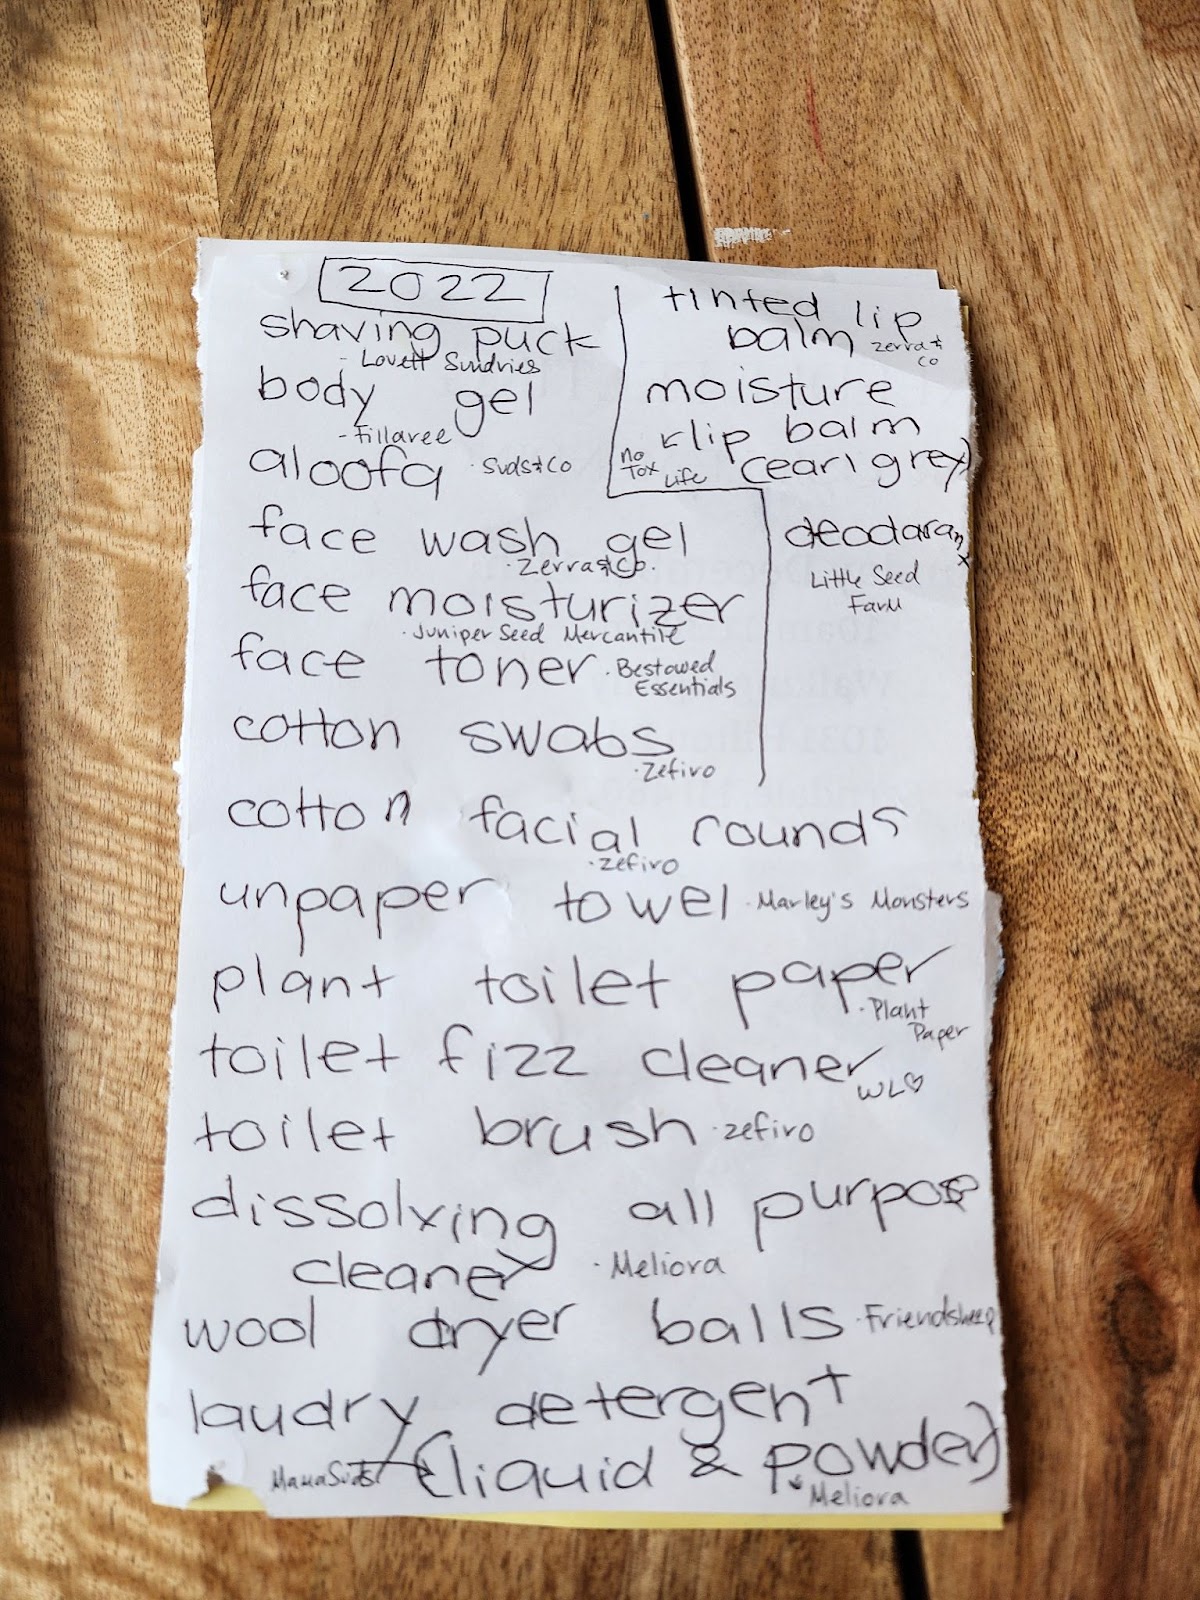 2022
shaving puck
- Lovett Sundries
body gel
- Fillaree
aloofa · Suds & Co
face wash gel
· Zerra & Co.
face moisturizer
· Juniper Seed Mercantile
face toner · Bestowed
Essentials
cotton swabs
· Zefiro
cotton facial rounds
· zefiro
unpaper towel · Marley's Monsters
plant toilet paper
· Plant
Paper
toilet fizz cleaner
WL♡
toilet brush · zefiro
dissolving all purpose
cleaner · Meliora
wool dryer balls · Friendsheep
laudry detergent
MamaSuds (liquid & powder)
Meliora
tinted lip
balm zerra &
co
moisture
lip balm
no
Tox
Life
(earl grey)
deodorant
Little Seed
Farm